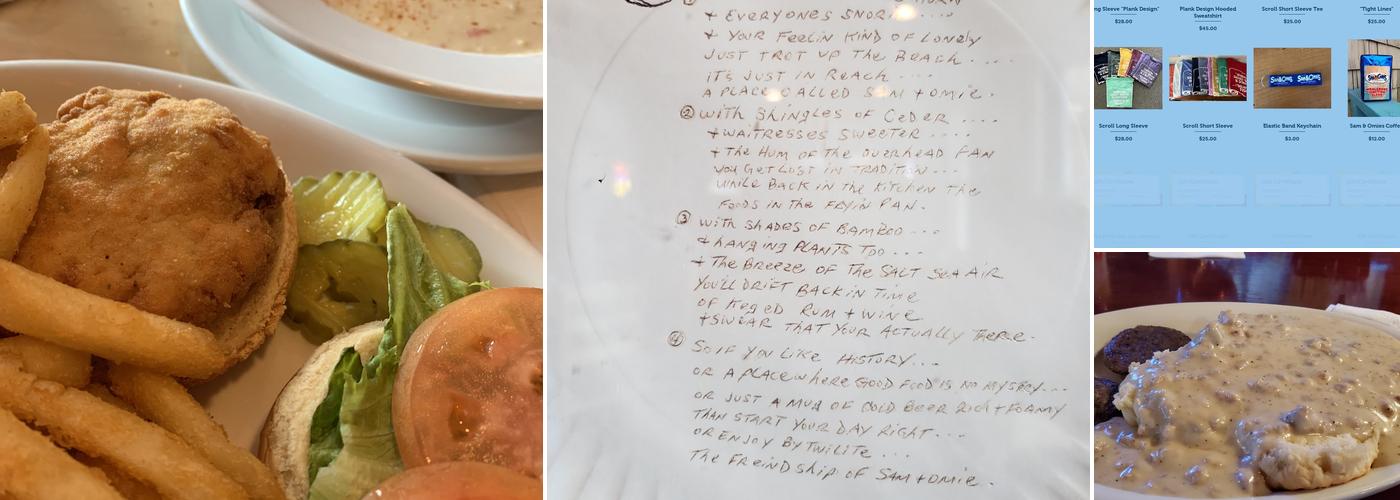 + EVERYONES SNORIN ....
+ YOUR FEELIN KIND OF LONELY
JUST TROT UP THE BEACH ....
IT'S JUST IN REACH ....
A PLACE CALLED SAM + OMIE.
② WITH SHINGLES OF CEDER ....
+ WAITRESSES SWEETER ....
+ THE HUM OF THE OVERHEAD FAN
YOU GET LOST IN TRADITION ...
WHILE BACK IN THE KITCHEN THE
FOODS IN THE FRYIN PAN.
③ WITH SHADES OF BAMBOO ...
+ HANGING PLANTS TOO ...
+ THE BREEZE OF THE SALT SEA AIR
YOU'LL DRIFT BACK IN TIME
OF KEGED RUM + WINE
+ SWEAR THAT YOUR ACTUALLY THERE.
④ SO IF YOU LIKE HISTORY ...
OR A PLACE WHERE GOOD FOOD IS NO MYSTERY ...
OR JUST A MUG OF COLD BEER RICH + FOAMY
THAN START YOUR DAY RIGHT ...
OR ENJOY BY TWILITE ...
THE FREINDSHIP OF SAM + OMIE.
ng Sleeve "Plank Design"
$28.00
Plank Design Hooded
Sweatshirt
$45.00
Scroll Short Sleeve Tee
$25.00
"Tight Lines"
$25.00
Scroll Long Sleeve
$28.00
Scroll Short Sleeve
$25.00
Elastic Band Keychain
$3.00
Sam & Omies Coffe
$12.00